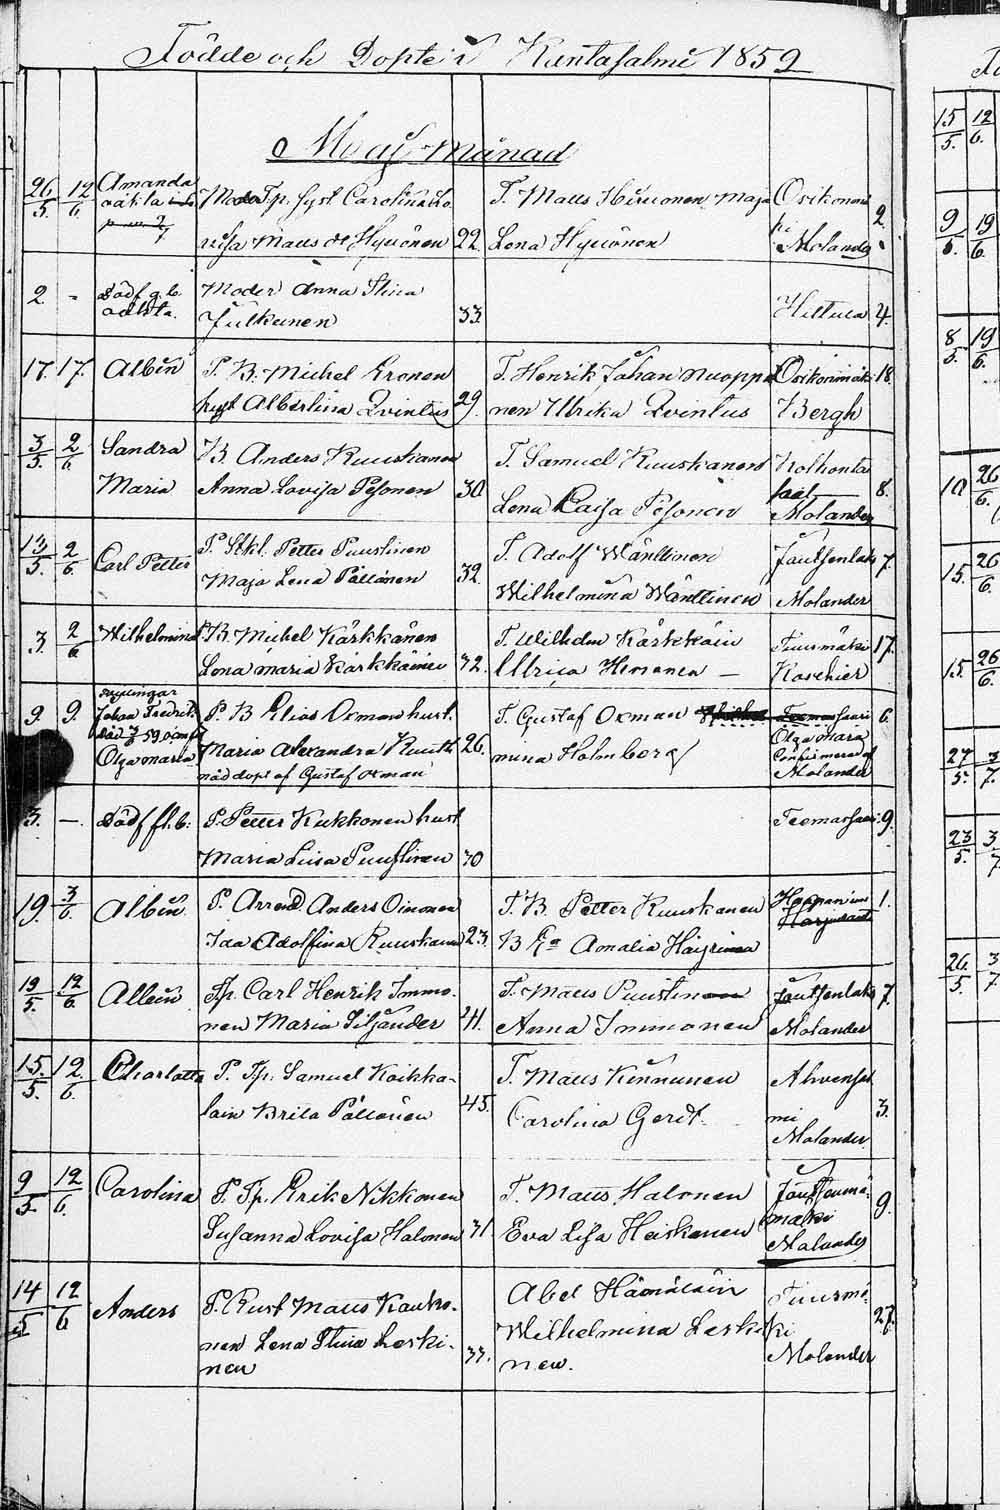 Födde och Döpte i Rantasalmi 1859
Maij Månad
26/5. 12/6. Amanda oäkta
Moder Tp. hyst Carolina Lo
visa Matts dr Hyvönen 22.
T. Matts Hirvonen, Maja
Lena Hyvönen
Osikonmä
ki
Molander 2.
2. - Dödf. g. b. oäkta.
Moder Anna Stina
Julkunen 33.
Hiltula 4.
17. 17. Albin
P. B. Michel Kronen
hust Albertina Qvintus 29.
T. Henrik Johan Nuoppo
nen Ulrika Qvintus
Osikonmäki 18.
Bergh
3/5. 2/6. Sandra
Maria
B. Anders Ruuskanen
Anna Lovisa Pesonen 30.
T. Samuel Ruuskanen
Lena Caisa Pesonen
Kolkonta
Molander 8.
13/5. 2/6. Carl Petter
P. Stkl. Petter Puustinen
Maja Lena Pöllänen 32.
T. Adolf Wänttinen
Wilhelmina Wänttinen
Joutsenlaks 7.
Molander
3. 2/6 Wilhelmina
B. Michel Kärkkänen
Lena Maria Kärkkäinen 32.
T. Wilhelm Kärkkäin
Ulrica Immonen —
Tuusmäki 17.
Roschier
9. 9. tvillingar
Johan Fredrik
Olga Maria
P. B Elias Oxman hust.
Maria Alexandra Ruuth 26.
nöd döpt af Gustaf Oxman
T. Gustaf Oxman
mina Holmberg
Teemassaari 6.
Olga Maria
Confirmerad af
Molander
3. — Dödf fl. b.
P. Petter Kukkonen hust
Maria Lovisa Puustinen 30
Teemassaari 9.
19. 3/6. Albin
P. Arrend. Anders Oinonen
Ida Adolfina Ruuskanen 23.
T. B. Petter Ruuskanen
B Ea Amalia Häyrinen
1.
19/5. 12/6. Albin
Tp. Carl Henrik Immo-
nen Maria Siljander 41.
T. Matts Puustinen
Anna Immonen
Joutsenlaks 7.
Molander
15./5. 12./6. Charlotta
P. Tp. Samuel Koikka-
lain Brita Pöllänen 45.
T. Matts Kinnunen
Carolina Gerdt.
Ahvensal
mi 3.
Molander
9/5. 12/6. Carolina
P. Tp. Erik Nikkonen
Susanna Lovisa Halonen 31
T. Matts Halonen
Eva Lisa Heiskanen
Joutsenmä-
mäki 9.
Molander
14/5 12/6 Anders
P. Rust Matts Kauko-
nen Lena Stina Leski-
nen 33.
Abel Hämäläin
Wilhelmina Leski
nen.
Tuusmä-
ki 27.
Molander
15/5. 12/6.
9/5. 19/6.
8/5. 19/6.
10. 26/6.
15. 26/6.
15. 26/6.
27/5. 3/7.
23/5. 3/7
26./5 3/7